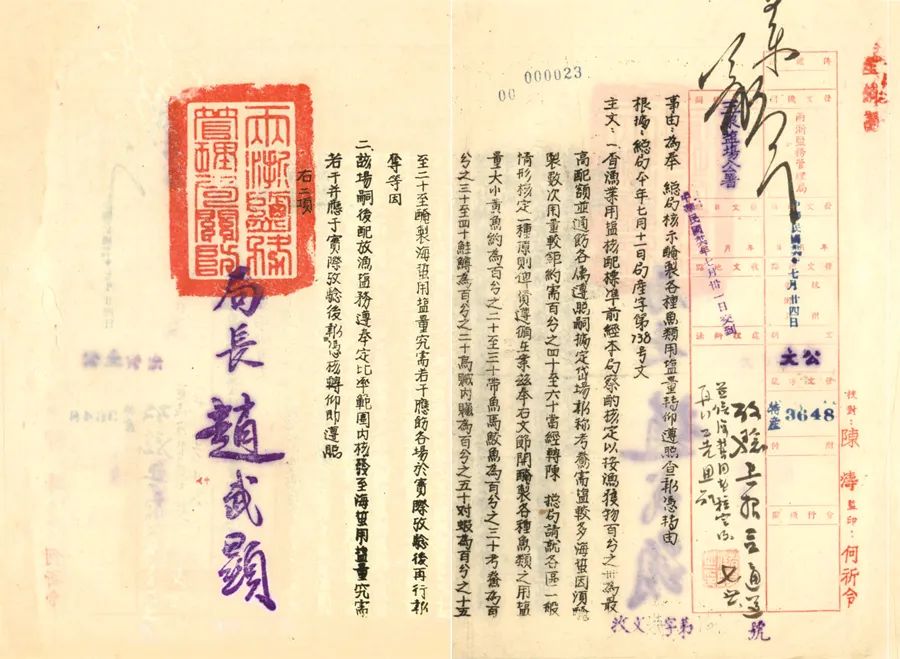 000023
00
兩浙鹽務管理局
公文
特產 3648
校對：陳濤 監印：何祈令
中華民國 年七月廿四日
中華民國 年七月廿一日交到
事由：為奉 總局核示醃製各種魚類用鹽量轉仰遵照查報憑轉由
根據：總局本年七月十二日局產字第738号文
主文：一、查漁業用鹽核配標準前經本局察酌核定以按漁獲物百分之卅為最
高配額並通飭各倉遵照嗣據定岱場報称考鰲需鹽較多海蜇因須醃
製數次用量較鉅約需百分之四十至六十當經轉陳 總局請就各區一般
情形核定一種原則俾資遵循在案兹奉右文節開醃製各種魚類之用鹽
量大小黃魚約為百分之二十至三十帶魚馬鮫魚為百分之三十考鰲為百
分之三十至四十鮭鱘為百分之二十鳥賊內臟為百分之五十对蝦為百分之十五
至二十至醃製海蜇用鹽量究需若干應飭各場於實際攷驗後再行報
奪等因
二、該場嗣後配放漁鹽務遵奉定比率範圍內核發至海蜇用鹽量究需
若干并應于實際攷驗後報憑核轉仰即遵照
右二項
局長 趙武顯
收文 字第 號